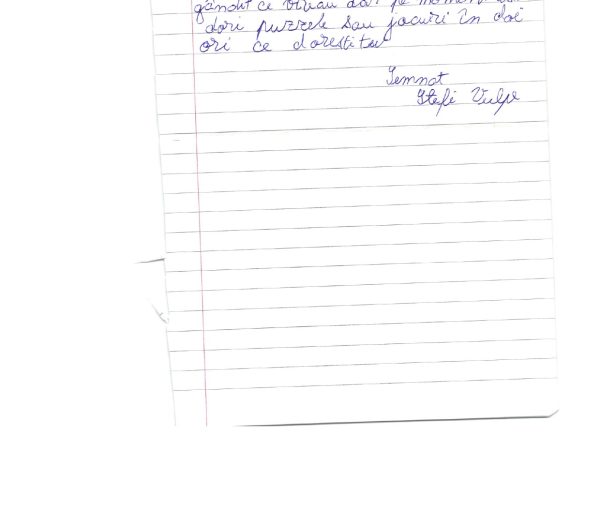 gândit ce vreau dar pe moment
dori puzzele sau jocuri în doi
ori ce dorestitu
Semnat
Stefi Vulpe